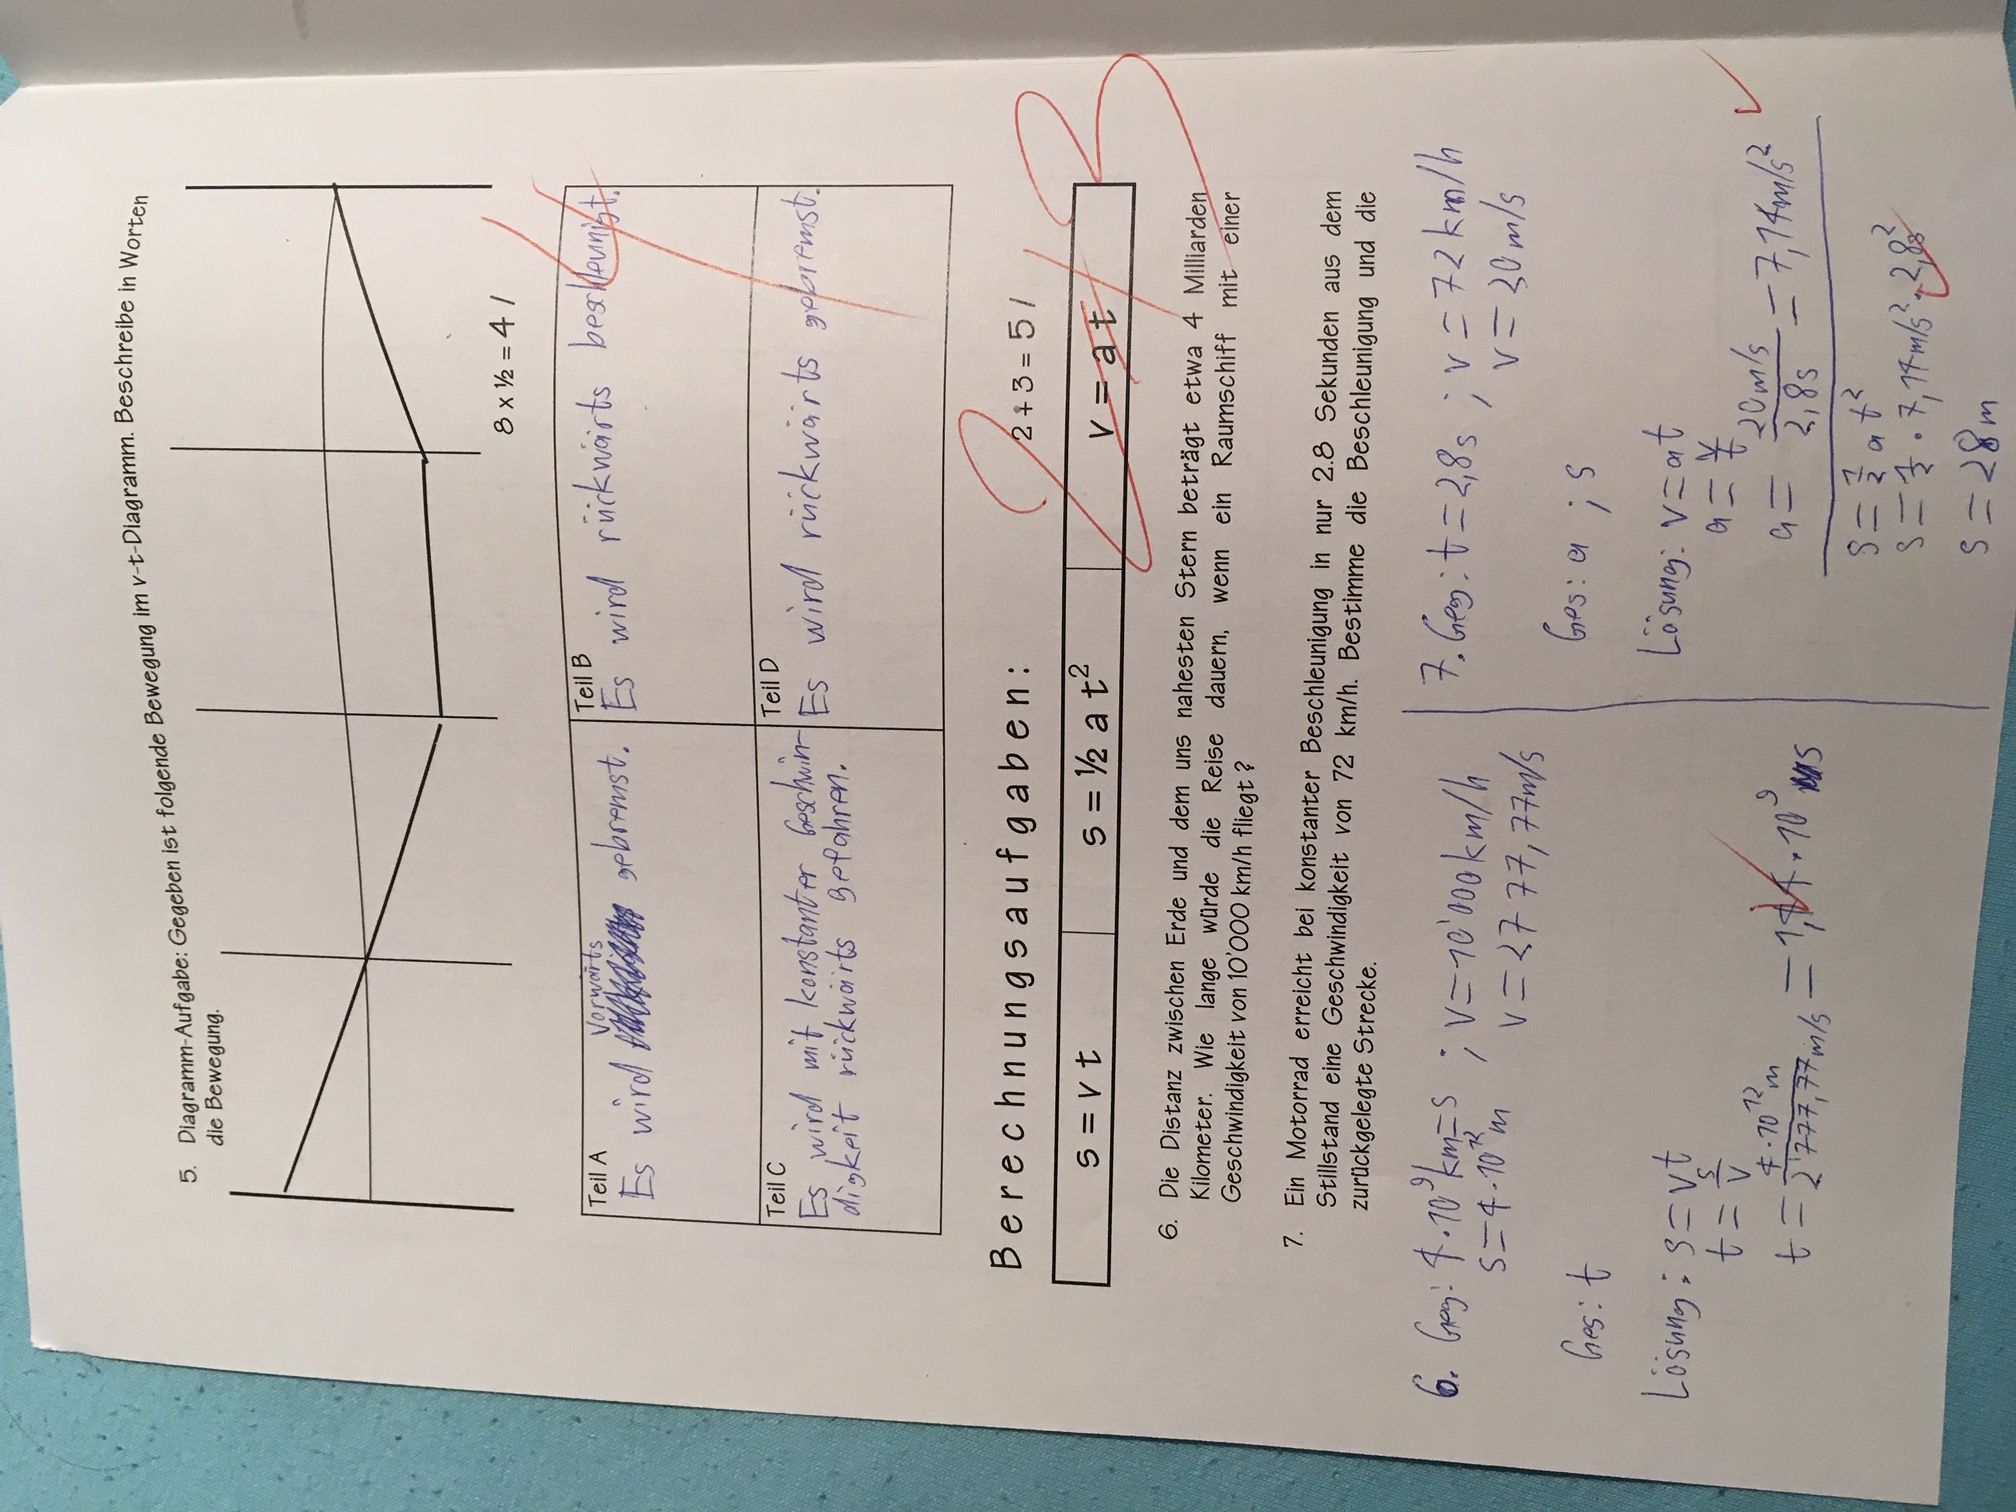 5. Diagramm-Aufgabe: Gegeben ist folgende Bewegung im v-t-Diagramm. Beschreibe in Worten
die Bewegung.
8 x ½ = 4 /
4
Teil A
Vorwärts
Es wird gebremst.
Teil B
Es wird rückwärts beschleunigt.
Teil C
Es wird mit konstanter Geschwin-
digkeit rückwärts gefahren.
Teil D
Es wird rückwärts gebremst.
Berechnungsaufgaben:
2 + 3 = 5 /
2+3
s = v t
s = ½ a t²
v = a t
6. Die Distanz zwischen Erde und dem uns nahesten Stern beträgt etwa 4 Milliarden
Kilometer. Wie lange würde die Reise dauern, wenn ein Raumschiff mit einer
Geschwindigkeit von 10'000 km/h fliegt ?
7. Ein Motorrad erreicht bei konstanter Beschleunigung in nur 2.8 Sekunden aus dem
Stillstand eine Geschwindigkeit von 72 km/h. Bestimme die Beschleunigung und die
zurückgelegte Strecke.
6. Geg: 4·10⁹km=s ; v=10'000km/h
s=4·10¹²m
v=2777,77m/s
Ges: t
Lösung: s=vt
t=s/v
t= 4·10¹²m / 2'777,77m/s = 1,44·10⁹ s
7. Geg: t=2,8s ; v=72km/h
v=20m/s
Ges: a ; s
Lösung: v=at
a=v/t
a= 20m/s / 2,8s =7,14m/s²
s=½at²
s=½·7,14m/s²·2,8s²
s=28m